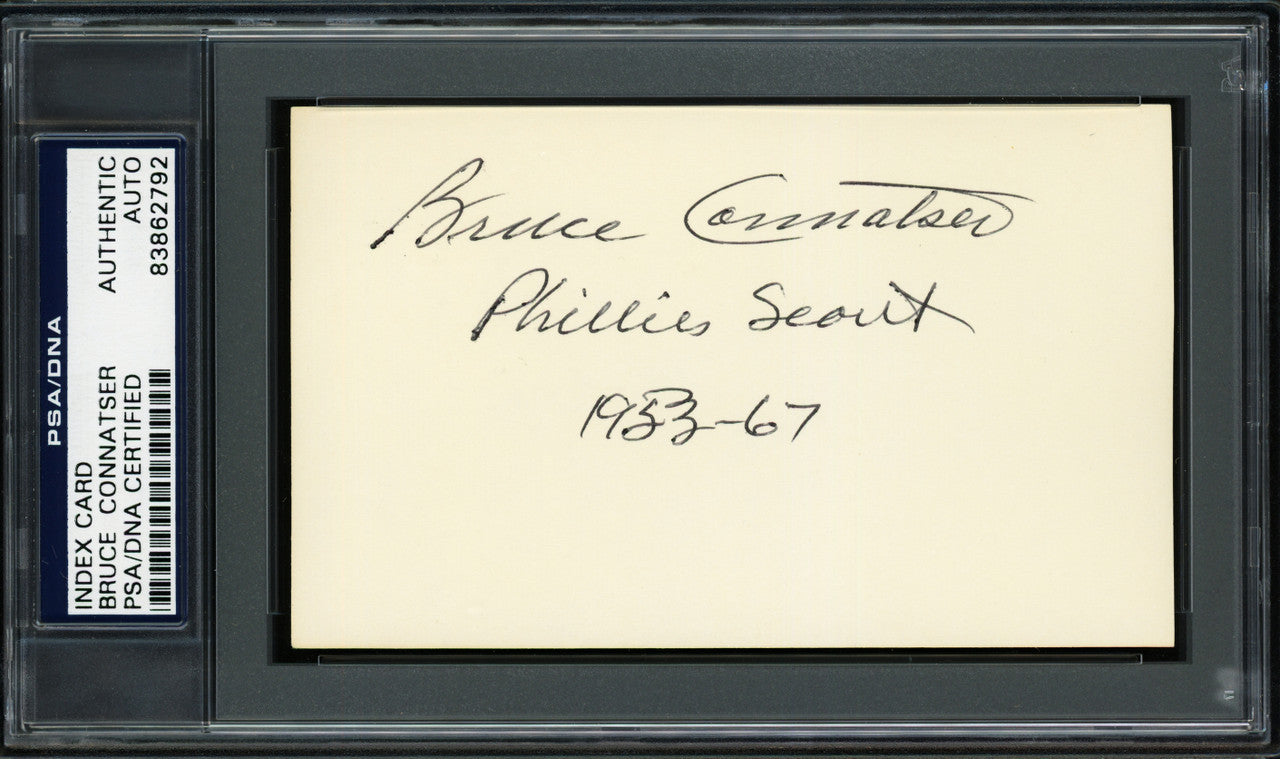 PSA/DNA
INDEX CARD
BRUCE CONNATSER
PSA/DNA CERTIFIED
AUTHENTIC
AUTO
83862792
Bruce Connatser
Phillies Scout
1953-67